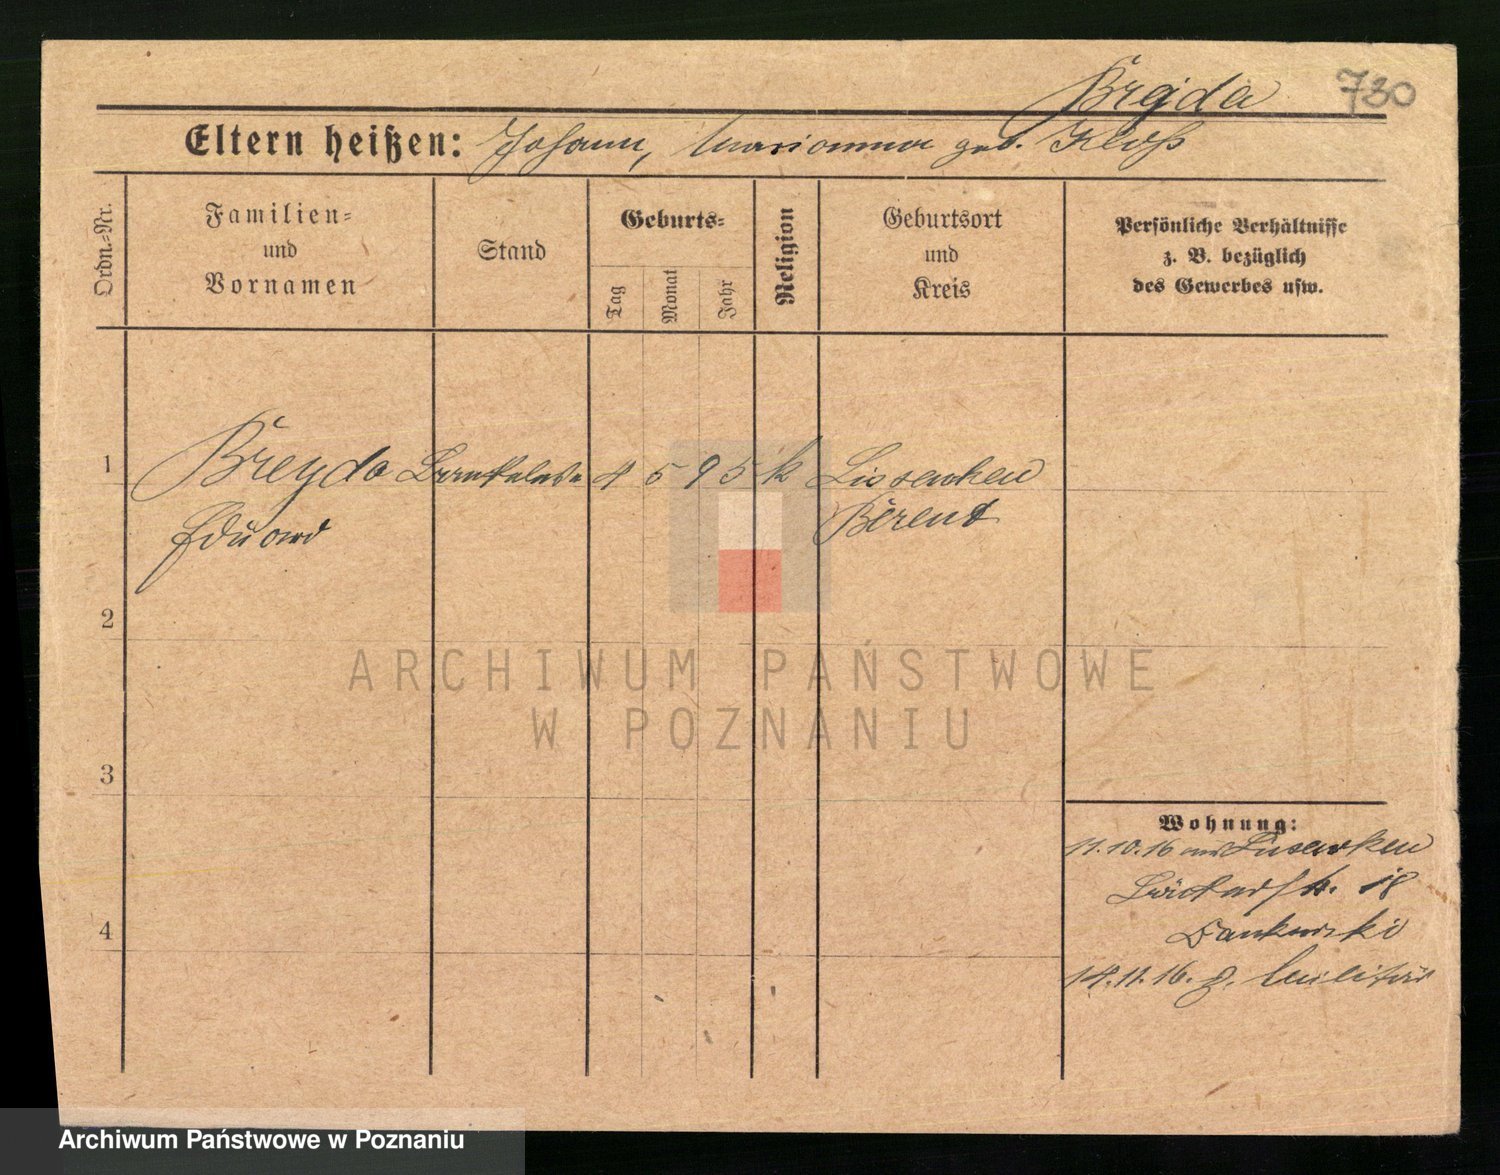 Brejda
730
Eltern heißen: Johann, Marianna geb. Kloß
Ordn.=Nr.
Familien=
und
Vornamen
Stand
Geburts=
Tag
Monat
Jahr
Religion
Geburtsort
und
Kreis
Persönliche Verhältnisse
z. B. bezüglich
des Gewerbes usw.
1
Breyda
4 5 95 k
Eduard
Berent
2
ARCHIWUM PAŃSTWOWE
W POZNANIU
3
Wohnung:
11.10.16
18
4
14.11.16. z. Militär
Archiwum Państwowe w Poznaniu